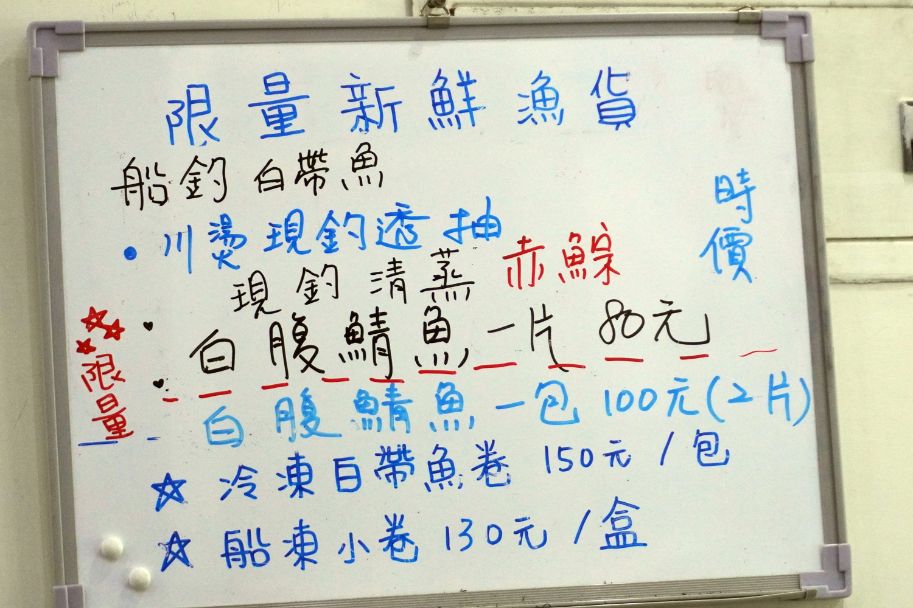 限量新鮮漁貨
船釣 白帶魚
時價
• 川燙現釣透抽
現釣清蒸 赤鯮
♥ 白腹鯖魚一片 80元
限量
♥ 白腹鯖魚一包 100元(2片)
☆ 冷凍白帶魚卷 150元/包
☆ 船凍小卷 130元/盒